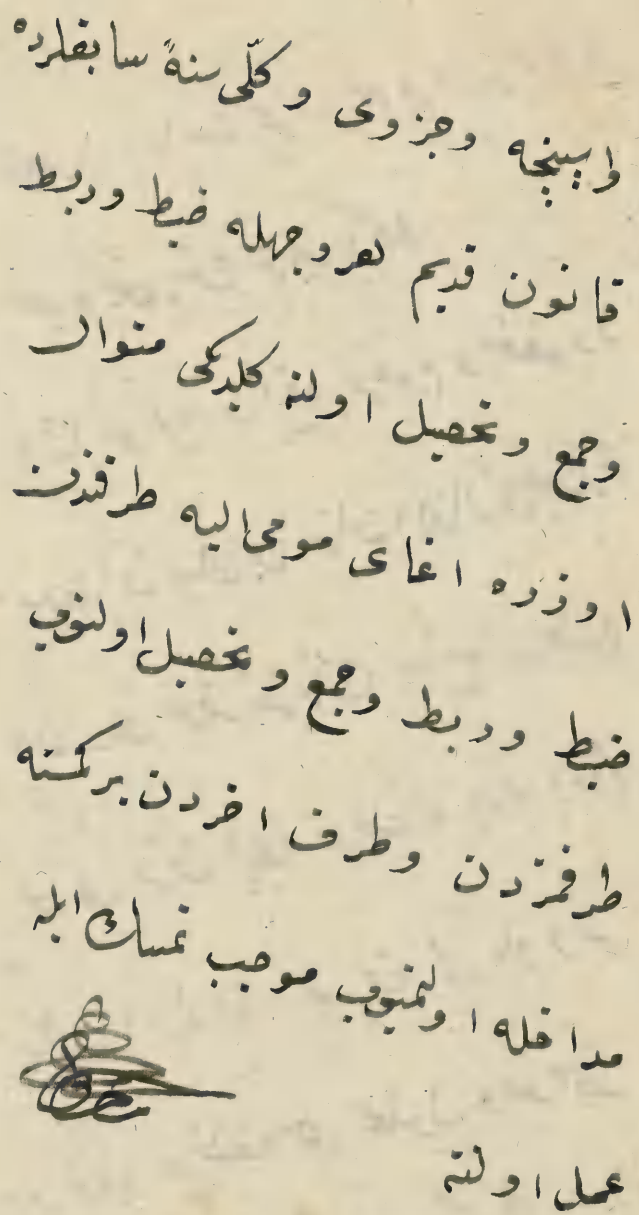 واسپنجه وجزوى وكلّى سنهٔ سابقلرده
قانون قديم هر وجهله ضبط وربط
وجمع وتحصيل اولنه كلديكى منوال
اوزره اغاى مومى اليه طرفندن
ضبط وربط وجمع وتحصيل اولنوب
طرفمزدن وطرف اخردن بر كمسنه
مداخله اولنميوب موجب تمسك ايله
عمل اولنه